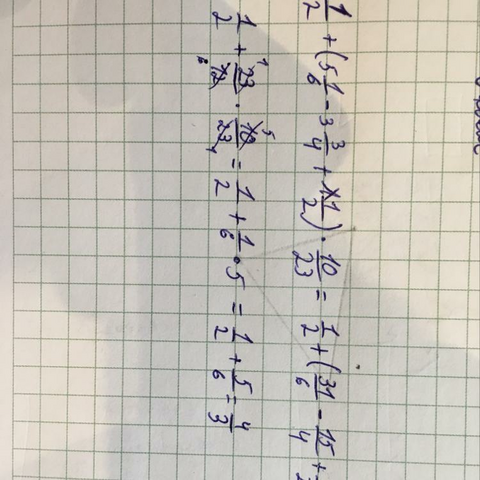 1/2 + (5 1/6 - 3 3/4 + 1 1/2) · 10/23 = 1/2 + (31/6 - 15/4 +
1/2 + 23/12 · 10/23 = 1/2 + 1/6 · 5 = 1/2 + 5/6 = 4/3